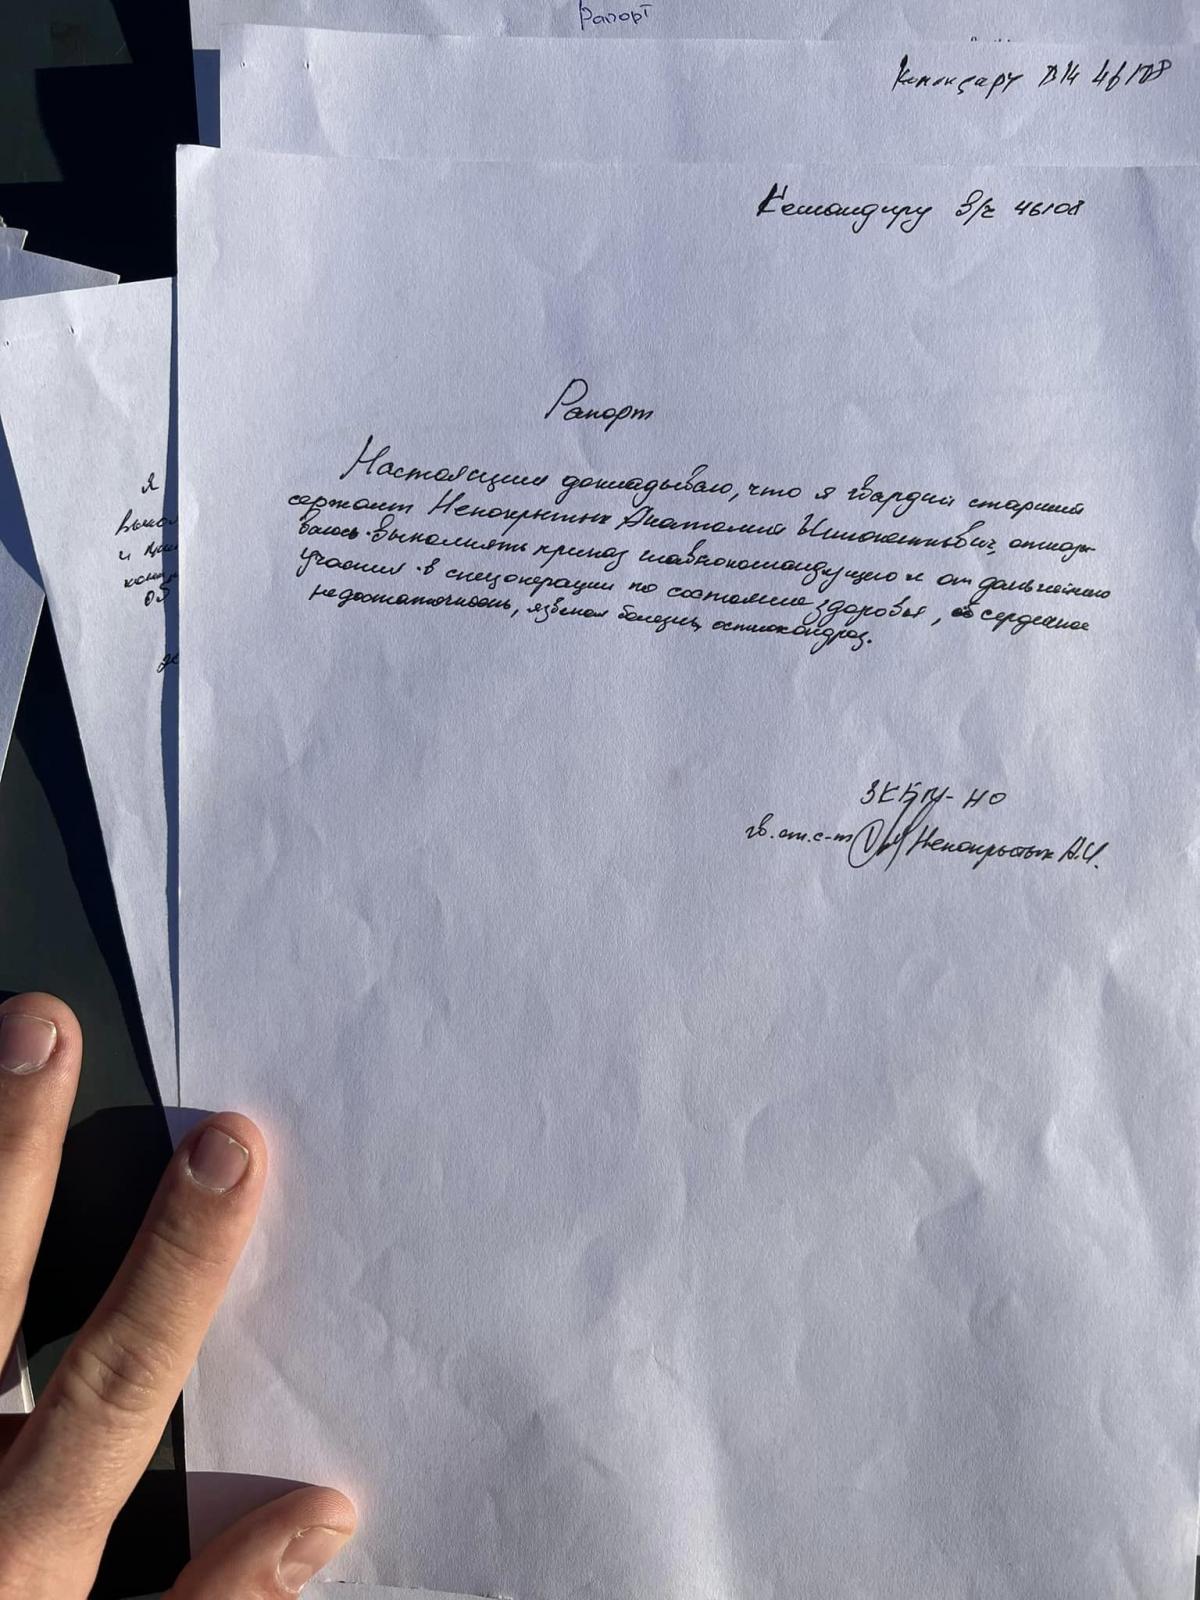 Рапорт
Командиру ВЧ 46108
Командиру в/ч 46108
Рапорт
Настоящим докладываю, что я гвардии старший
сержант Непокрытых Анатолий Иннокентьевич, отказы-
ваюсь выполнять приказ главнокомандующего и от дальнейшего
участия в спецоперации по состоянию здоровья, сердечная
недостаточность, язвеная болезнь, остиохондроз.
ЗКБПУ-НО
гв.ст.с-т Непокрытых А.И.
Я
и